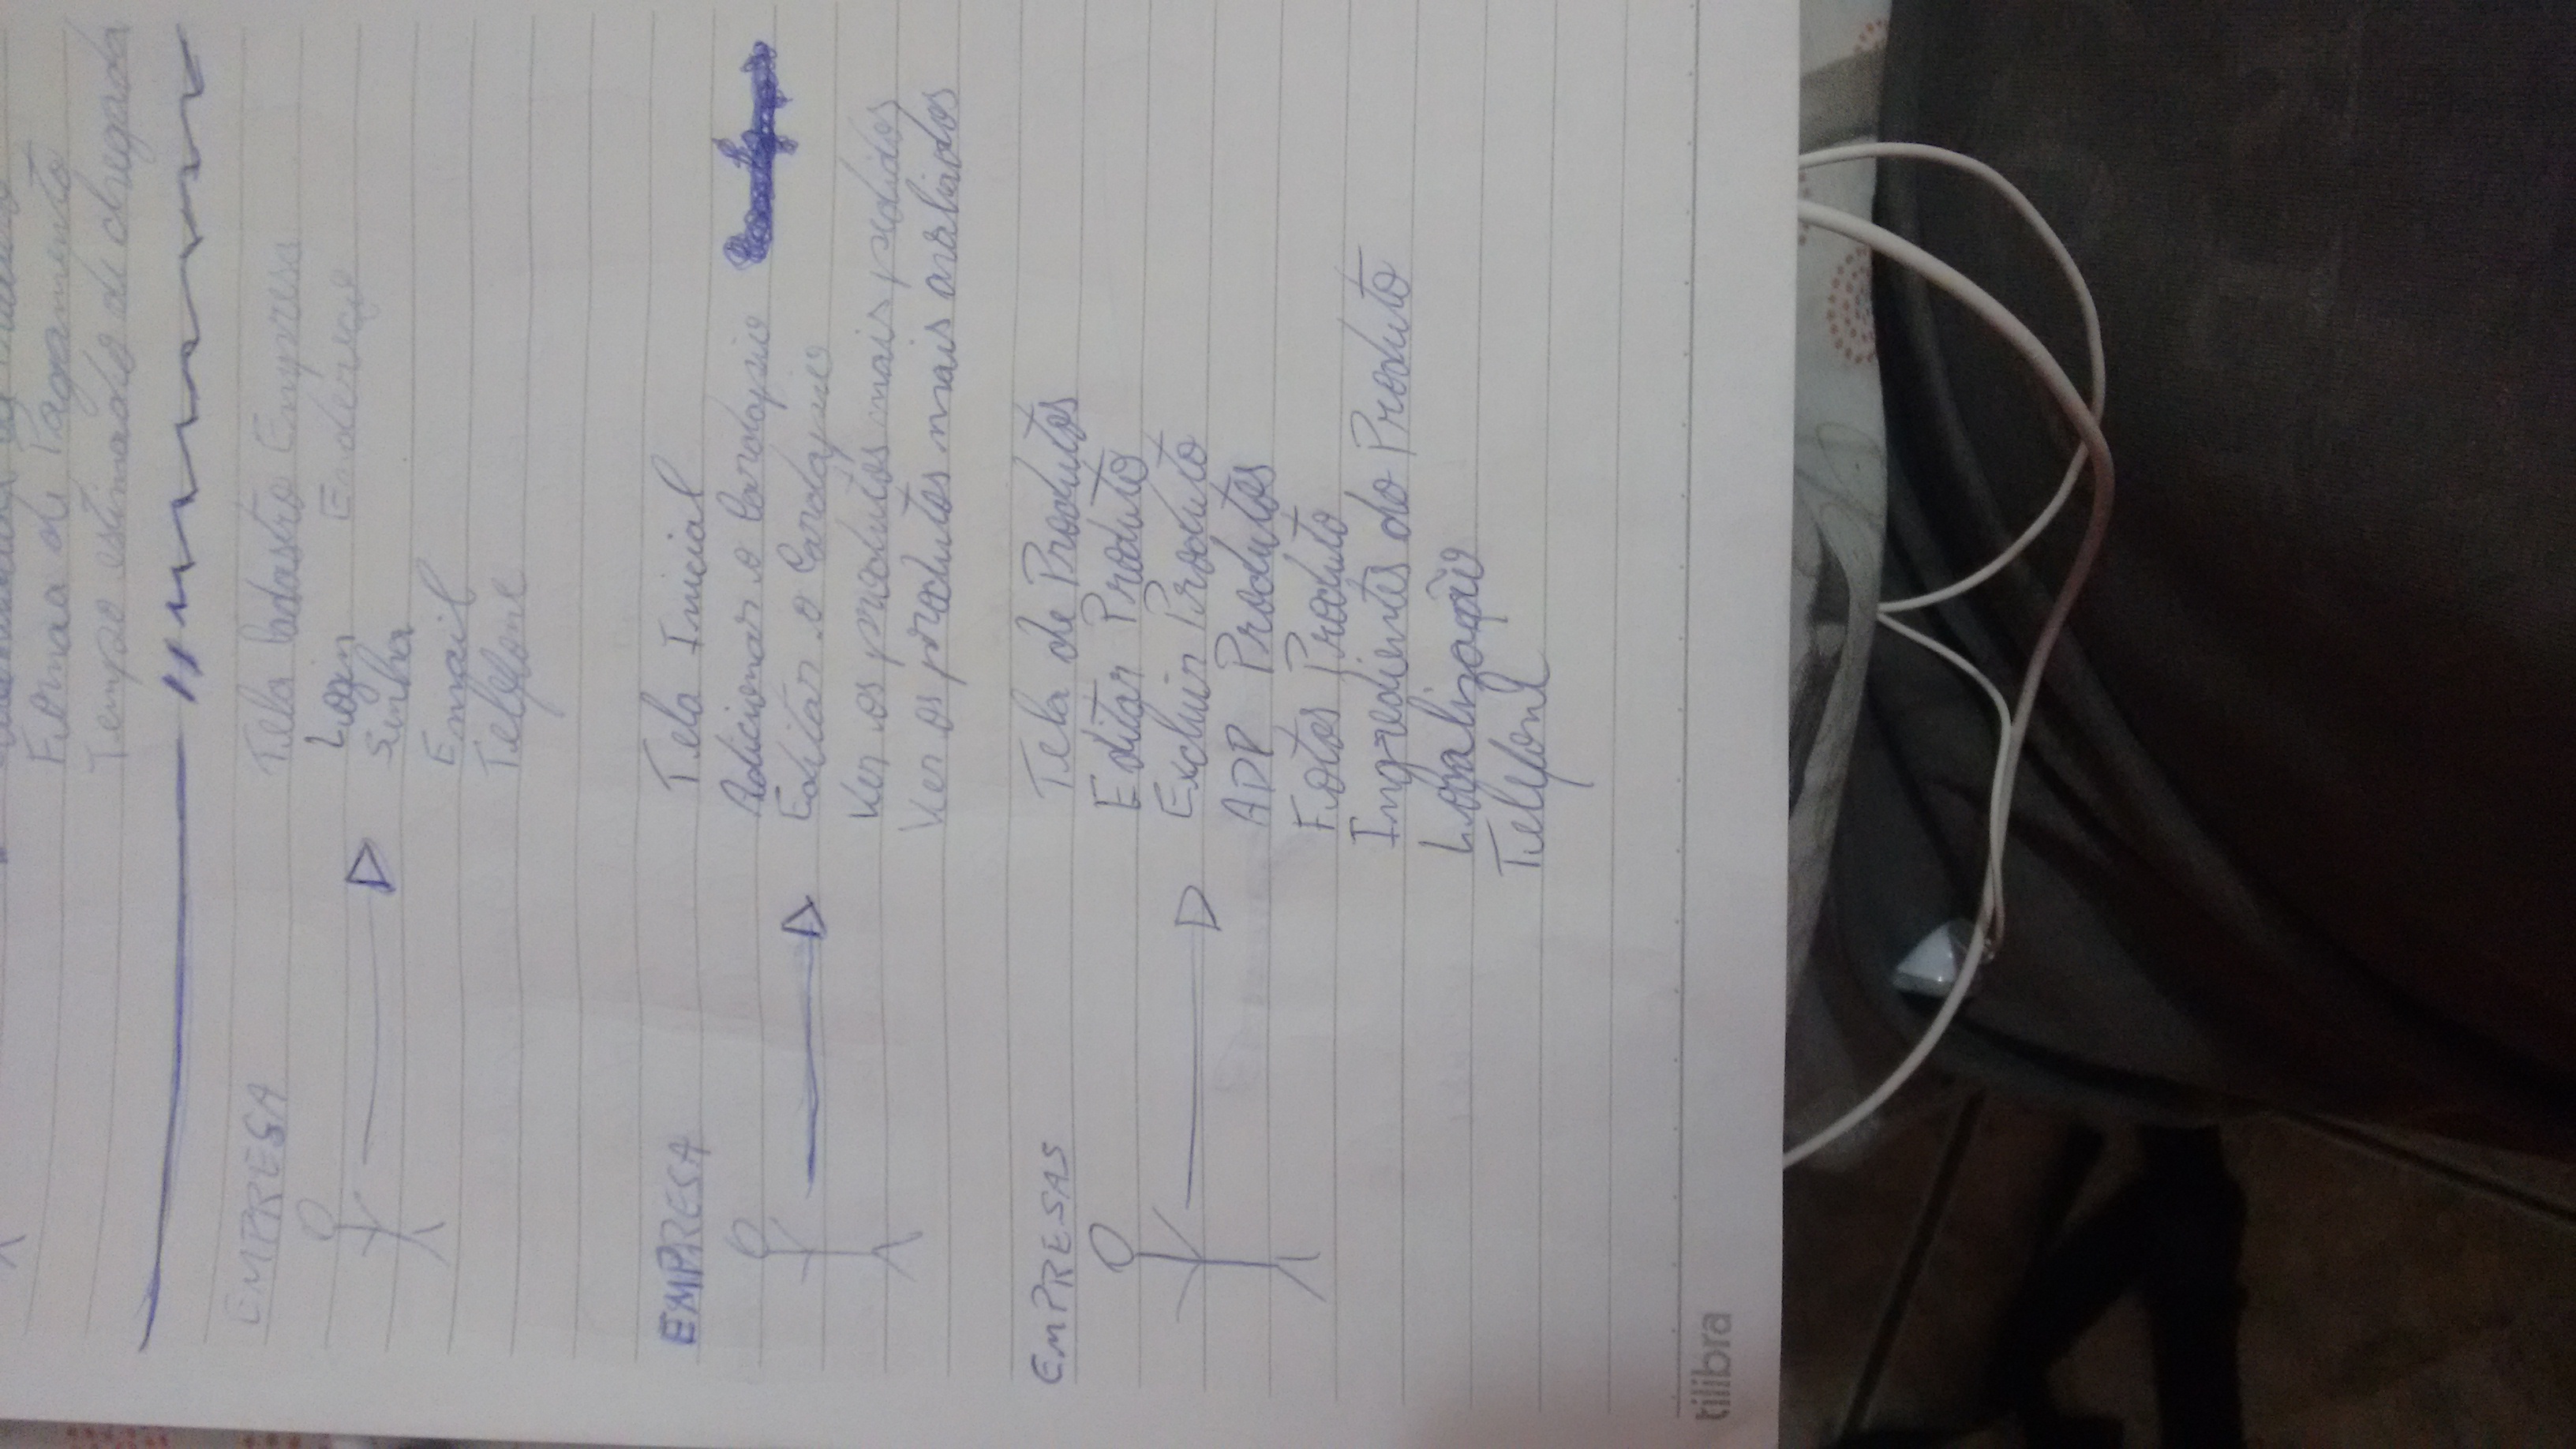 Forma de Pagamento
Tempo estimado de chegada
EMPRESA
Tela Cadastro Empresa
Login
Endereço
Sinha
Email
Telefone
EMPRESA
Tela Inicial
Adicionar o Cardapio
Editar o Cardapio
Ver os produtos mais pedidos
Ver os produtos mais avaliados
EMPRESAS
Tela de Produtos
Editar Produto
Excluir Produto
ADP Produtos
Fotos Produto
Ingredientes do Produto
Localização
Telefone
tilibra